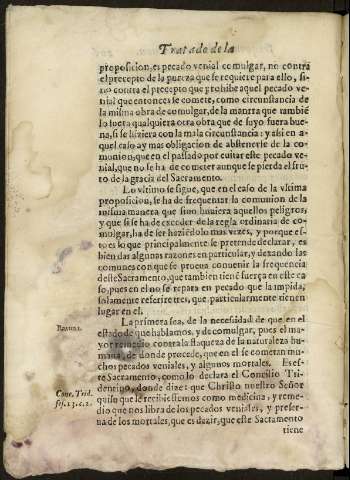 Tratado de la
proposicion, es pecado venial comulgar, no contra
el precepto de la pureza que se requiere para ello, si-
no contra el precepto que prohibe aquel pecado ve-
nial que entonces se comete, como circunstancia de
la misma obra de comulgar, de la manera que tambiẽ
lo fuera qualquiera otra obra que de suyo fuera bue-
na, si se hiziera con la mala circunstancia: y asi en a-
quel caso ay mas obligacion de abstenerse de la co-
munion, que en el passado por euitar este pecado ve-
nial, que no se ha de cometer aunque se pierda el fru-
to de la gracia del Sacramento.
Lo vltimo se sigue, que en el caso de la vltima
proposicion, se ha de frequentar la comunion de la
misma manera que sino huuiera aquellos peligros,
y que si se ha de exceder de la regla ordinaria de co-
mulgar, ha de ser haziẽdolo mas vezes, y porque es-
to es lo que principalmente se pretende declarar, es
bien dar algunas razones en particular, y dexando las
comunes con que se prueua conuenir la frequencia
deste Sacramento, que tambien tiene fuerça en este ca-
so, pues en el no se repara en pecado que la impida,
solamente referire tres, que particularmente tienen
lugar en el.
Razon 1.
La primera sea, de la necesidad de que en el
estado de que hablamos, y de comulgar, pues es el ma-
yor remedio contra la flaqueza de la naturaleza hu-
mana, de donde procede, que en el se cometan mu-
chos pecados veniales, y algunos mortales. Es es-
te Sacramento, como lo declara el Concilio Tri-
Conc. Trid.
ses. 13. c. 2.
dentino, donde dize: que Christo nuestro Señor
quiso que le recibiessemos como medicina, y reme-
dio que nos libra de los pecados veniales, y preser-
ua de los mortales, que es dezir, que este Sacramento
tiene